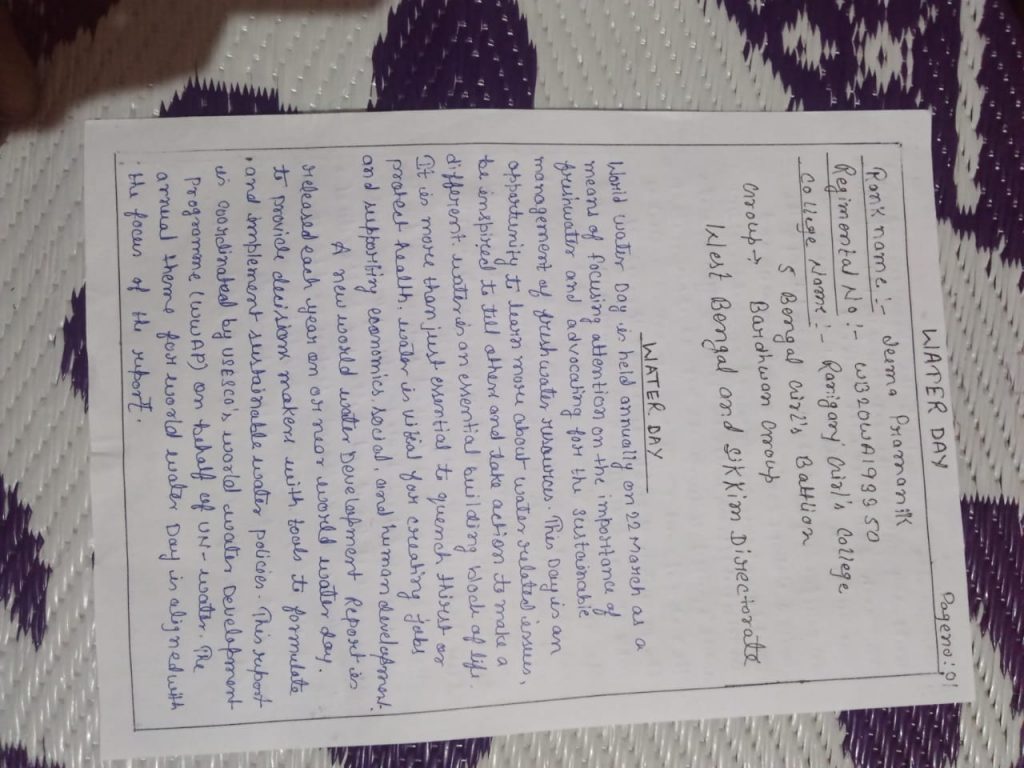 WATER DAY
Pageno:- 01
Rank name :- Jsuma Pramanik
Regimental No :- WB20WA1999 50
College Name :- Ranigang Girl's College
5 Bengal Girl's Battlion
Group → Bardhwan Group
West Bengal and Sikkim Directorate
WATER DAY
World water Day is held annually on 22 March as a
means of focusing attention on the importance of
freshwater and advocating for the sustainable
management of freshwater resources. This Day is an
opportunity to learn more about water related issues,
be inspired to tell others and take action to make a
different. water is an essential building block of life.
It is more than just essential to quench thirst or
protect health, water is vital for creating jobs
and supporting economics, social, and human development.
A new world water Development Report is
released each year on or near world water day.
to provide decision makers with tools to formulate
and implement sustainable water policies. This report
is coordinated by UESCO's world water Development
Programme (WWAP) on behalf of UN-water. The
annual theme for world water Day is aligned with
the focus of the report.